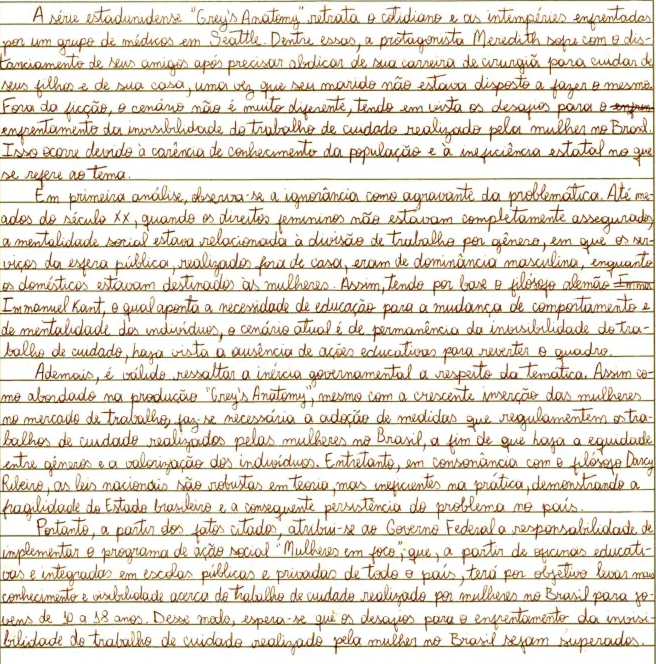 A série estadunidense "Grey's Anatomy" retrata o cotidiano e as intempéries enfrentadas
por um grupo de médicos em Seattle. Dentre essas, a protagonista Meredith sofre com o dis-
tanciamento de seus amigos após precisar abdicar de sua carreira de cirurgiã para cuidar de
seus filhos e de sua casa, uma vez que seu marido não estava disposto a fazer o mesmo.
Fora da ficção, o cenário não é muito diferente, tendo em vista os desafios para o
enfrentamento da invisibilidade do trabalho de cuidado realizado pela mulher no Brasil.
Isso ocorre devido à carência de conhecimento da população e à ineficiência estatal no que
se refere ao tema.
Em primeira análise, observa-se a ignorância como agravante da problemática. Até me-
ados do século XX, quando os direitos femininos não estavam completamente assegurados,
a mentalidade social estava relacionada à divisão de trabalho por gênero, em que os ser-
viços da esfera pública, realizados fora de casa, eram de dominância masculina, enquanto
os domésticos estavam destinados às mulheres. Assim, tendo por base o filósofo alemão
Immanuel Kant, o qual aponta a necessidade de educação para a mudança de comportamento e
de mentalidade dos indivíduos, o cenário atual é de permanência da invisibilidade do tra-
balho de cuidado, haja vista a ausência de ações educativas para reverter o quadro.
Ademais, é válido ressaltar a inércia governamental a respeito da temática. Assim co-
mo abordado na produção "Grey's Anatomy", mesmo com a crescente inserção das mulheres
no mercado de trabalho, faz-se necessária a adoção de medidas que regulamentem os tra-
balhos de cuidado realizados pelas mulheres no Brasil, a fim de que haja a equidade
entre gêneros e a valorização dos indivíduos. Entretanto, em consonância com o filósofo Darcy
Ribeiro, as leis nacionais são robustas em teoria, mas ineficientes na prática, demonstrando a
fragilidade do Estado brasileiro e a consequente persistência do problema no país.
Portanto, a partir dos fatos citados, atribui-se ao Governo Federal a responsabilidade de
implementar o programa de ação social "Mulheres em foco", que, a partir de oficinas educati-
vas e integradas em escolas públicas e privadas de todo o país, terá por objetivo levar mais
conhecimento e visibilidade acerca do trabalho de cuidado realizado por mulheres no Brasil para jo-
vens de 10 a 18 anos. Desse modo, espera-se que os desafios para o enfrentamento da invisi-
bilidade do trabalho de cuidado realizado pela mulher no Brasil sejam superados.